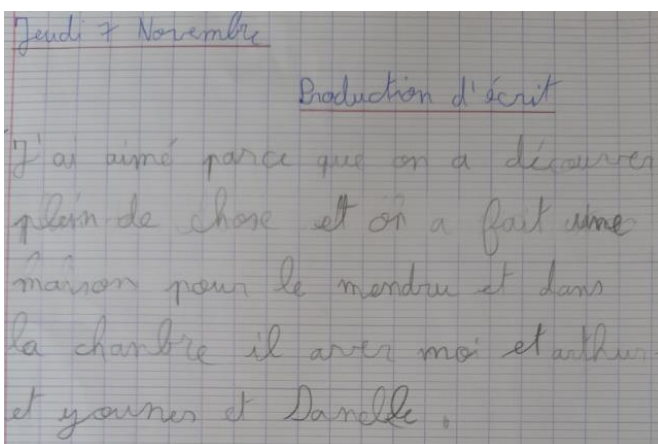 Jeudi 7 Novembre
Production d'écrit
J'ai aimé parce que on a découver
plein de chose et on a fait une
maison pour le mendru et dans
la chanbre il aver moi et arthur
et younes et Danelle.